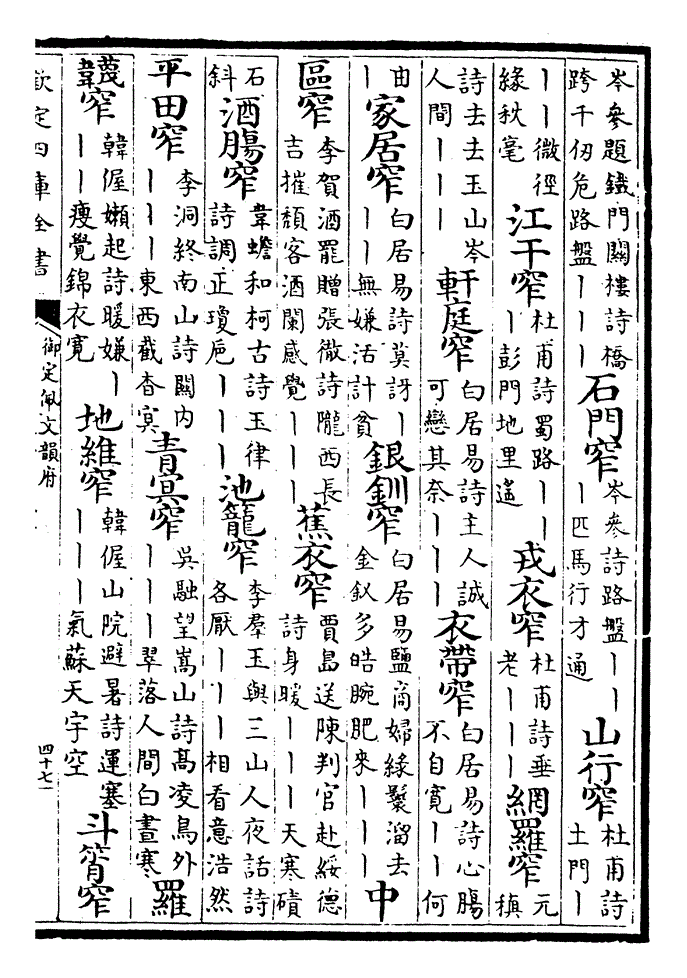 岑參題鐵門關樓詩橋
跨千仞危路盤丨丨丨
石門窄
岑參詩路盤丨丨
丨匹馬行才通
山行窄
杜甫詩
土門丨
丨丨微徑
緣秋毫
江干窄
杜甫詩蜀路丨丨
丨彭門地里遙
戎衣窄
杜甫詩垂
老丨丨丨
網羅窄
元
稹
詩去去玉山岑
人間丨丨丨
軒庭窄
白居易詩主人誠
可戀其奈丨丨丨
衣帶窄
白居易詩心腸
不自寬丨丨何
由
丨
家居窄
白居易詩莫訝丨
丨丨無嫌活計貧
銀釧窄
白居易鹽商婦緣鬟溜去
金釵多皓腕肥來丨丨丨
中
區窄
李賀酒罷贈張徹詩隴西長
吉摧頹客酒闌感覺丨丨丨
蕉衣窄
賈島送陳判官赴綏德
詩身暖丨丨丨天寒磧
石
斜
酒腸窄
韋蟾和柯古詩玉律
詩調正瓊巵丨丨丨
池籠窄
李羣玉與三山人夜話詩
各厭丨丨丨相看意浩然
平田窄
李洞終南山詩關內
丨丨丨東西截杳冥
青冥窄
吳融望嵩山詩高凌鳥外
丨丨丨翠落人間白晝寒
羅
韈窄
韓偓嬾起詩暖嫌丨
丨丨瘦覺錦衣寬
地維窄
韓偓山院避暑詩運塞
丨丨丨氣蘇天宇空
斗筲窄
欽定四庫全書
御定佩文韻府
四十七